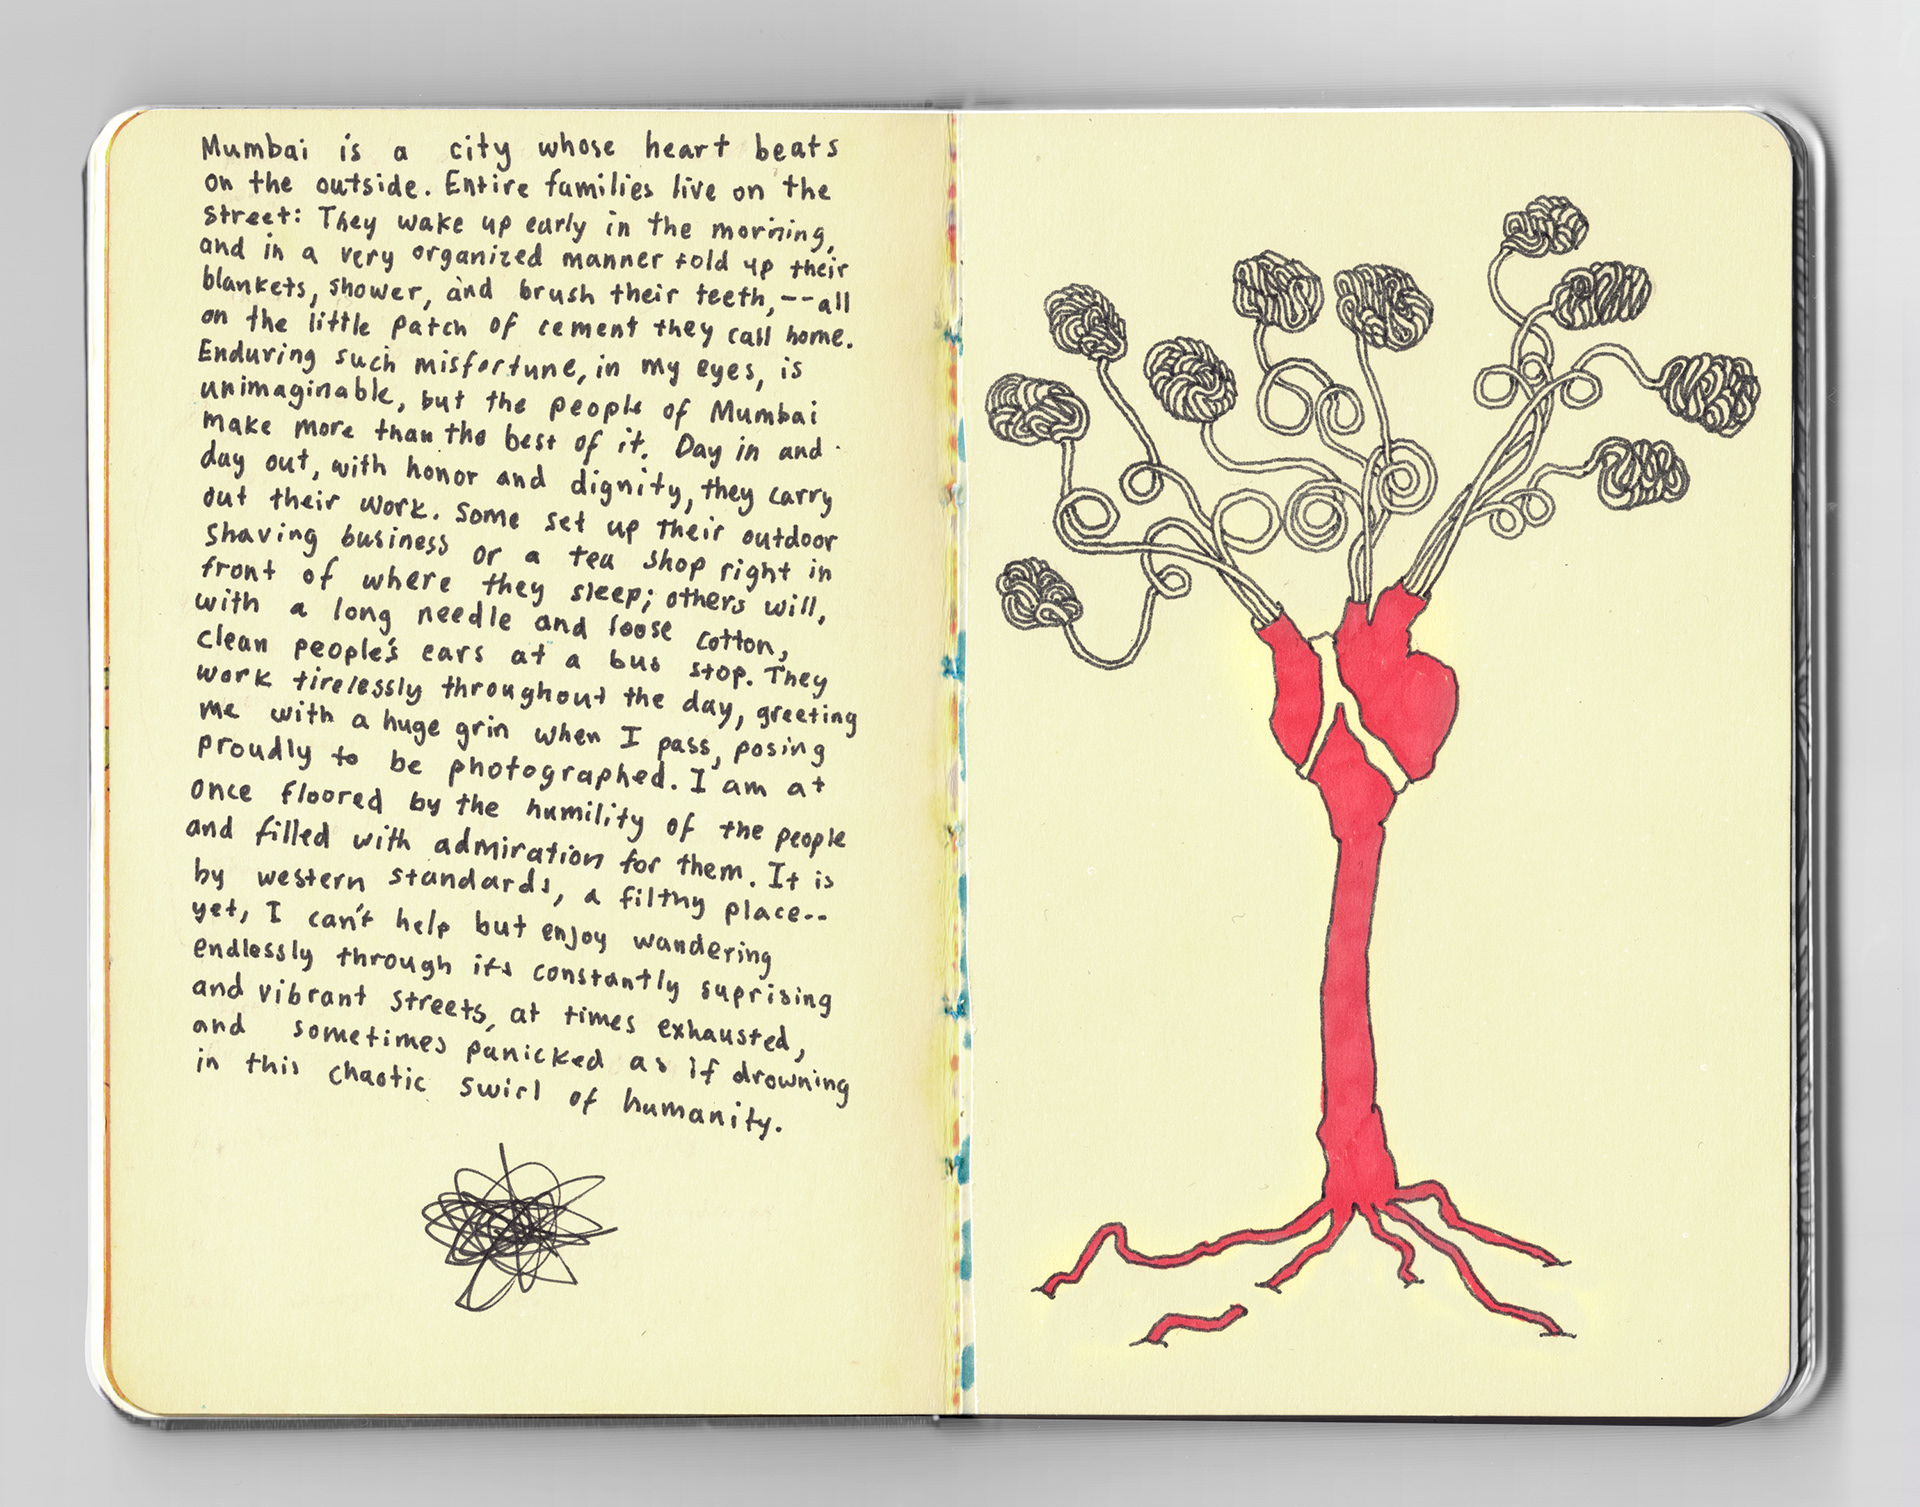 Mumbai is a city whose heart beats
on the outside. Entire families live on the
street: They wake up early in the morning,
and in a very organized manner fold up their
blankets, shower, and brush their teeth, -- all
on the little patch of cement they call home.
Enduring such misfortune, in my eyes, is
unimaginable, but the people of Mumbai
make more than the best of it. Day in and
day out, with honor and dignity, they carry
out their work. Some set up their outdoor
shaving business or a tea shop right in
front of where they sleep; others will,
with a long needle and loose cotton,
clean people's ears at a bus stop. They
work tirelessly throughout the day, greeting
me with a huge grin when I pass, posing
proudly to be photographed. I am at
once floored by the humility of the people
and filled with admiration for them. It is
by western standards, a filthy place--
yet, I can't help but enjoy wandering
endlessly through its constantly suprising
and vibrant streets, at times exhausted,
and sometimes panicked as if drowning
in this chaotic swirl of humanity.